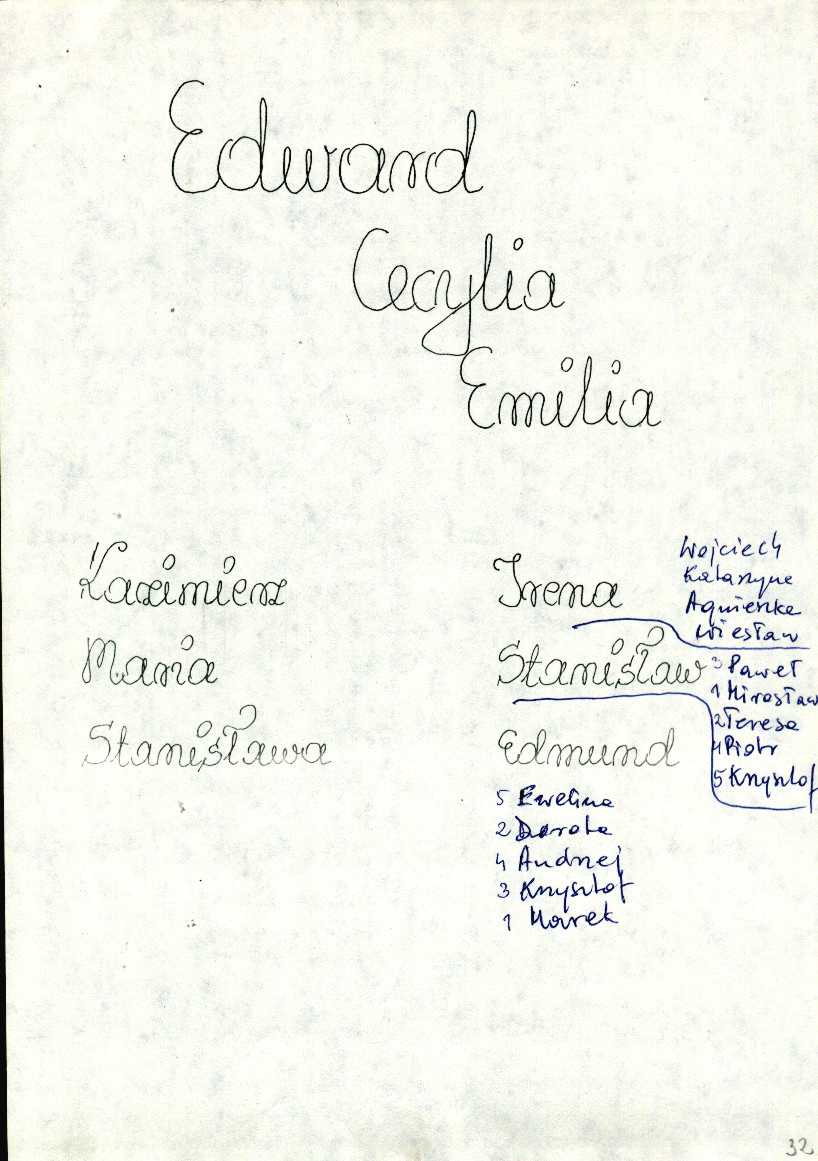 Edward
Cecylia
Emilia
Kazimierz
Maria
Stanisława
Irena
Wojciech
Katarzyna
Agnieszka
Wiesław
Stanisław
3 Paweł
1 Mirosław
2 Teresa
4 Piotr
5 Krzysztof
Edmund
5 Ewelina
2 Dorota
4 Andrzej
3 Krzysztof
1 Marek
32